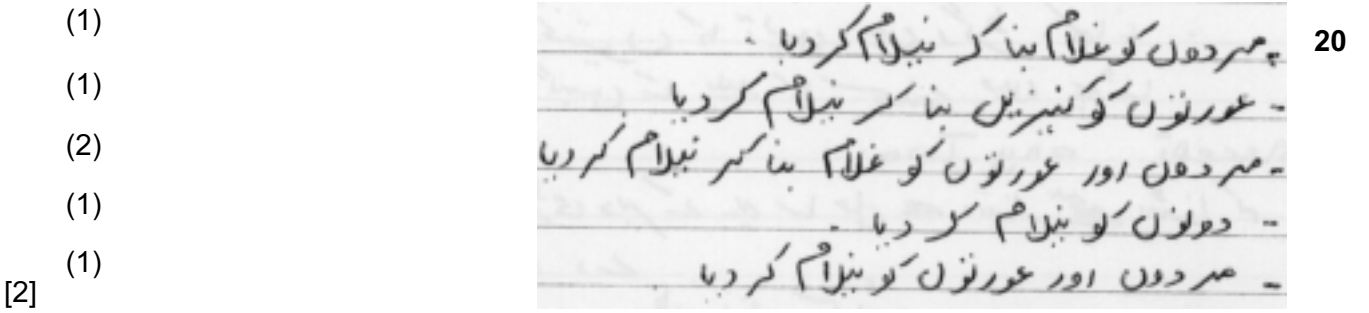 (1) - مردوں کو غلام بنا کر نیلام کر دیا . 20
(1) - عورتوں کو کنیزیں بنا کر نیلام کر دیا
(2) - مردوں اور عورتوں کو غلام بنا کر نیلام کر دیا
(1) - دونوں کو نیلام کر دیا .
(1) - مردوں اور عورتوں کو نیلام کر دیا
[2]